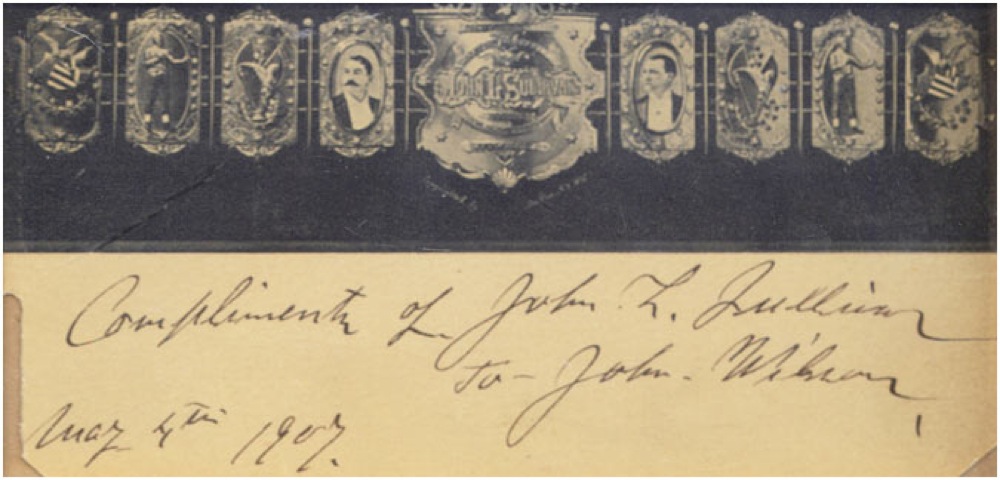 JOHN L. SULLIVAN
Compliments of John L. Sullivan
to - John. Wilson,
May 4th 1907.